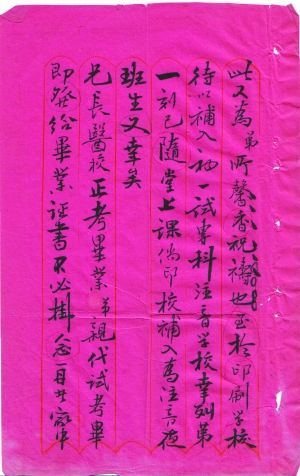 此又為弟所馨香祝禱也至於印刷学校
待以補入初一試專科注音学校幸列第
一刻已隨堂上課倘印校補入為注音夜
班生又幸矣
兄長醫校正考畢業弟親代試考畢
即發給畢業証書不必掛念二母廿家中